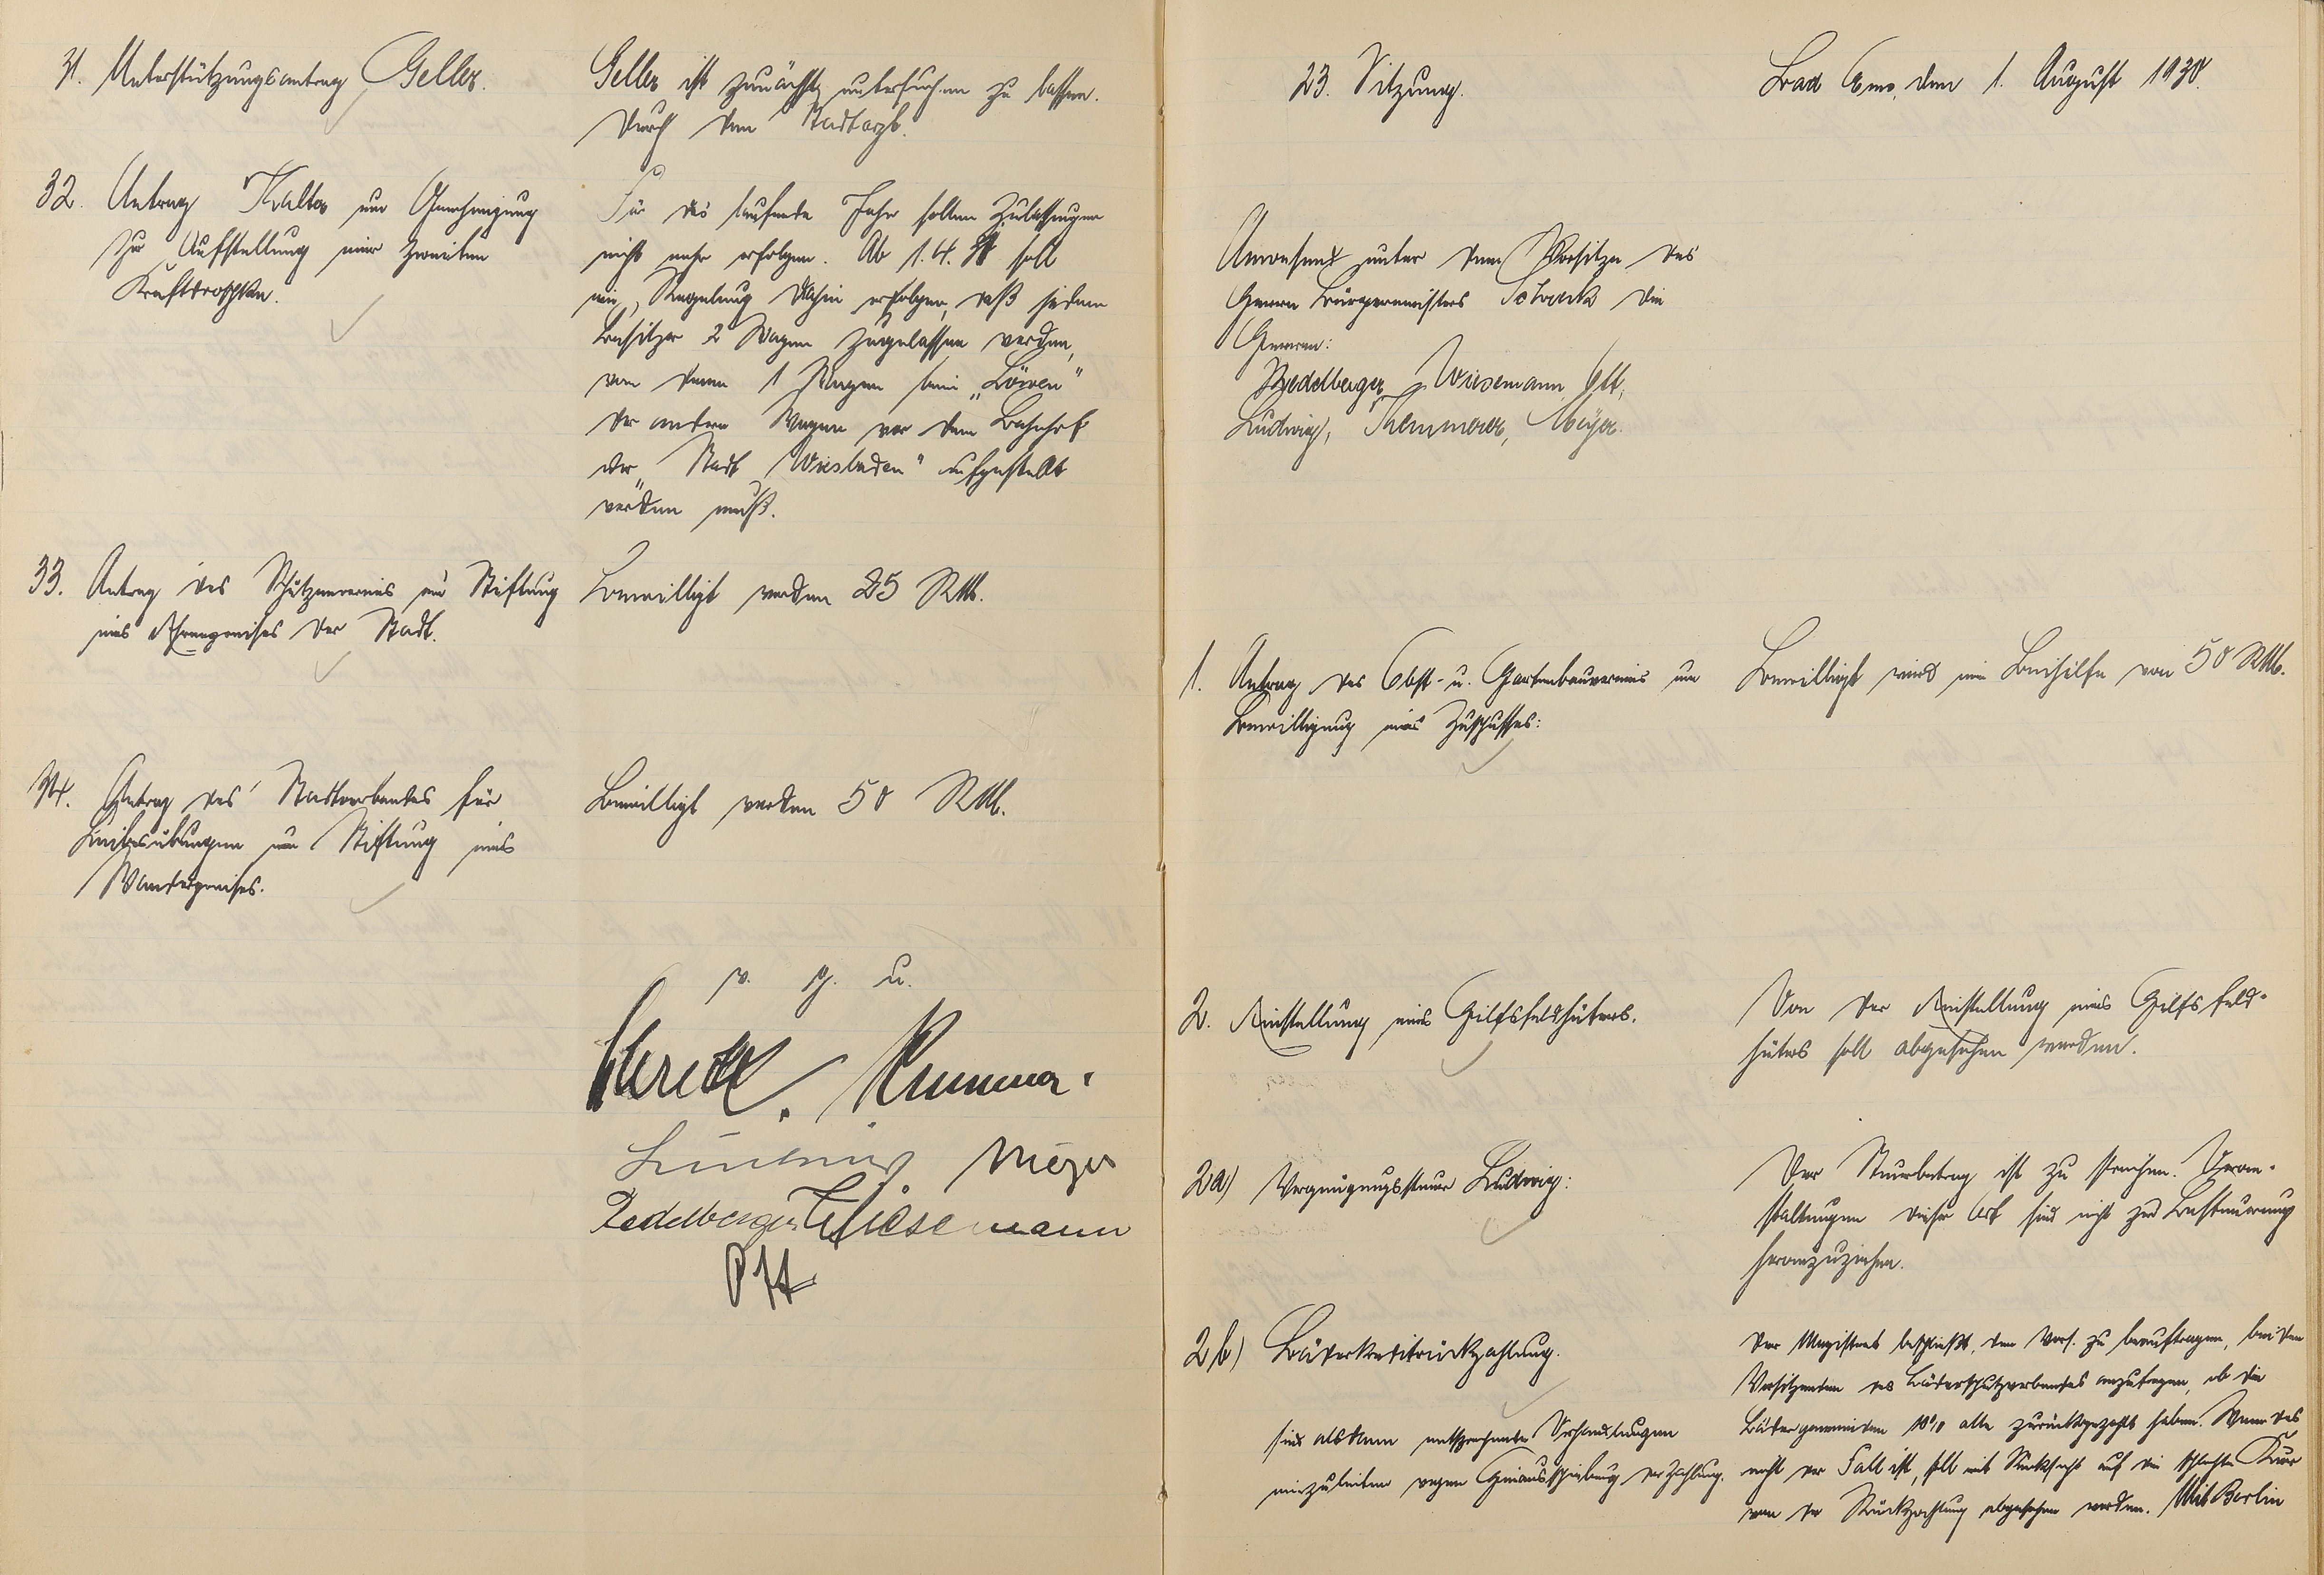 31. Unterstützungsantrag Geller.
Geller ist zunächst untersuchen zu lassen.
durch den Stadtarzt.
32. Antrag Kalter um Genehmigung
zur Aufstellung einer zweiten
Kraftdroschke.
Für das laufende Jahr sollen Zulassungen
nicht mehr erfolgen. Ab 1.4.31 soll
eine Regelung dahin erfolgen, daß jedem
Besitzer 2 Wagen zugelassen werden,
von denen 1 Wagen beim „Löwen"
der andere Wagen vor dem Bahnhof
oder „Stadt Wiesbaden" aufgestellt
werden muß.
33. Antrag des Schützenvereins um Stiftung
eines Ehrenpreises der Stadt.
Bewilligt werden 25 RM.
34. Antrag des Stadtverbandes für
Leibesübungen um Stiftung eines
Wanderpreises.
Bewilligt werden 50 RM.
v. g. u.
Schreck. Kemmerer.
Ludwig Meyer
Redelberger Wiesemann
Ott
23. Sitzung.
Bad Ems, den 1. August 1930.
Anwesend unter dem Vorsitze des
Herrn Bürgermeisters Schreck die
Herren:
Redelberger, Wiesemann, Ott,
Ludwig, Kemmerer, Meyer.
1. Antrag des Obst- u. Gartenbauvereins um
Bewilligung eines Zuschusses:
Bewilligt wird eine Beihilfe von 50 RM.
2. Einstellung eines Hilfsfeldhüters.
Von der Einstellung eines Hilfsfeld-
hüters soll abgesehen werden.
2a) Vergnügungssteuer Ludwig:
Der Steuerbetrag ist zu streichen. Veran-
staltungen dieser Art sind nicht zur Besteuerung
heranzuziehen.
2b) Bäderkreditrückzahlung.
Der Magistrat beschließt, den Vors. zu beauftragen, bei dem
Vorsitzenden des Bäderschutzverbandes anzufragen, ob die
Bädergemeinden 10% alle zurückgezahlt haben. Wenn das
nicht der Fall ist, soll mit Rücksicht auf die schlechte Kur
von der Rückzahlung abgesehen werden. Mit Berlin
sind alsdann entsprechende Verhandlungen
einzuleiten wegen Hinausschiebung der Zahlung.